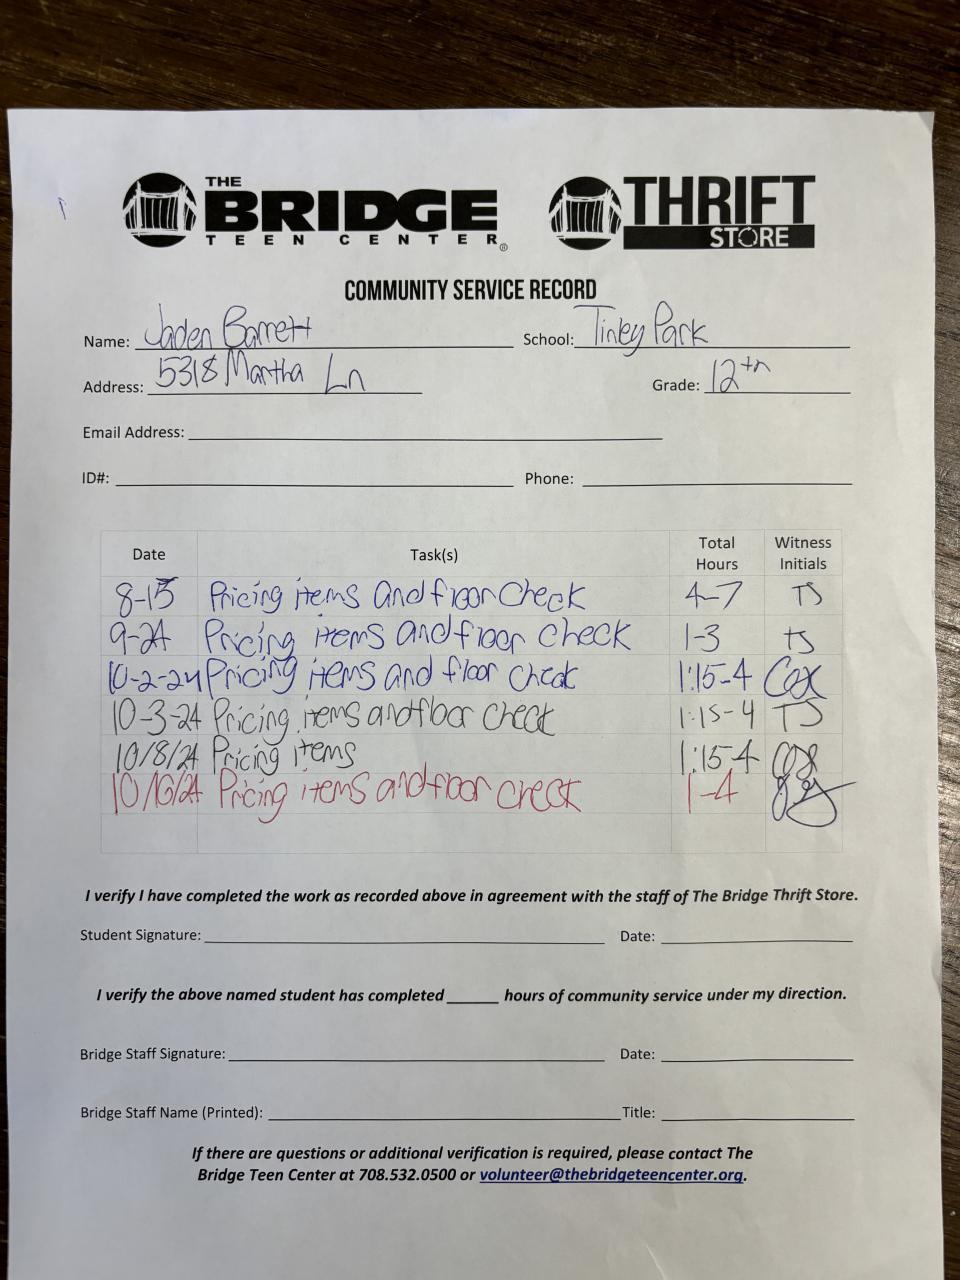 THE BRIDGE TEEN CENTER® THRIFT STORE
COMMUNITY SERVICE RECORD
Name: Jaden Barrett School: Tinley Park
Address: 5318 Martha Ln Grade: 12th
Email Address:
ID#: Phone:
Date Task(s) Total Hours Witness Initials
8-15 Pricing items and floor check 4-7 TS
9-24 Pricing items and floor check 1-3 TS
10-2-24 Pricing items and floor check 1:15-4
10-3-24 Pricing items and floor check 1:15-4 TS
10/8/24 Pricing items 1:15-4
10/10/24 Pricing items and floor check 1-4
I verify I have completed the work as recorded above in agreement with the staff of The Bridge Thrift Store.
Student Signature: Date:
I verify the above named student has completed hours of community service under my direction.
Bridge Staff Signature: Date:
Bridge Staff Name (Printed): Title:
If there are questions or additional verification is required, please contact The
Bridge Teen Center at 708.532.0500 or volunteer@thebridgeteencenter.org.